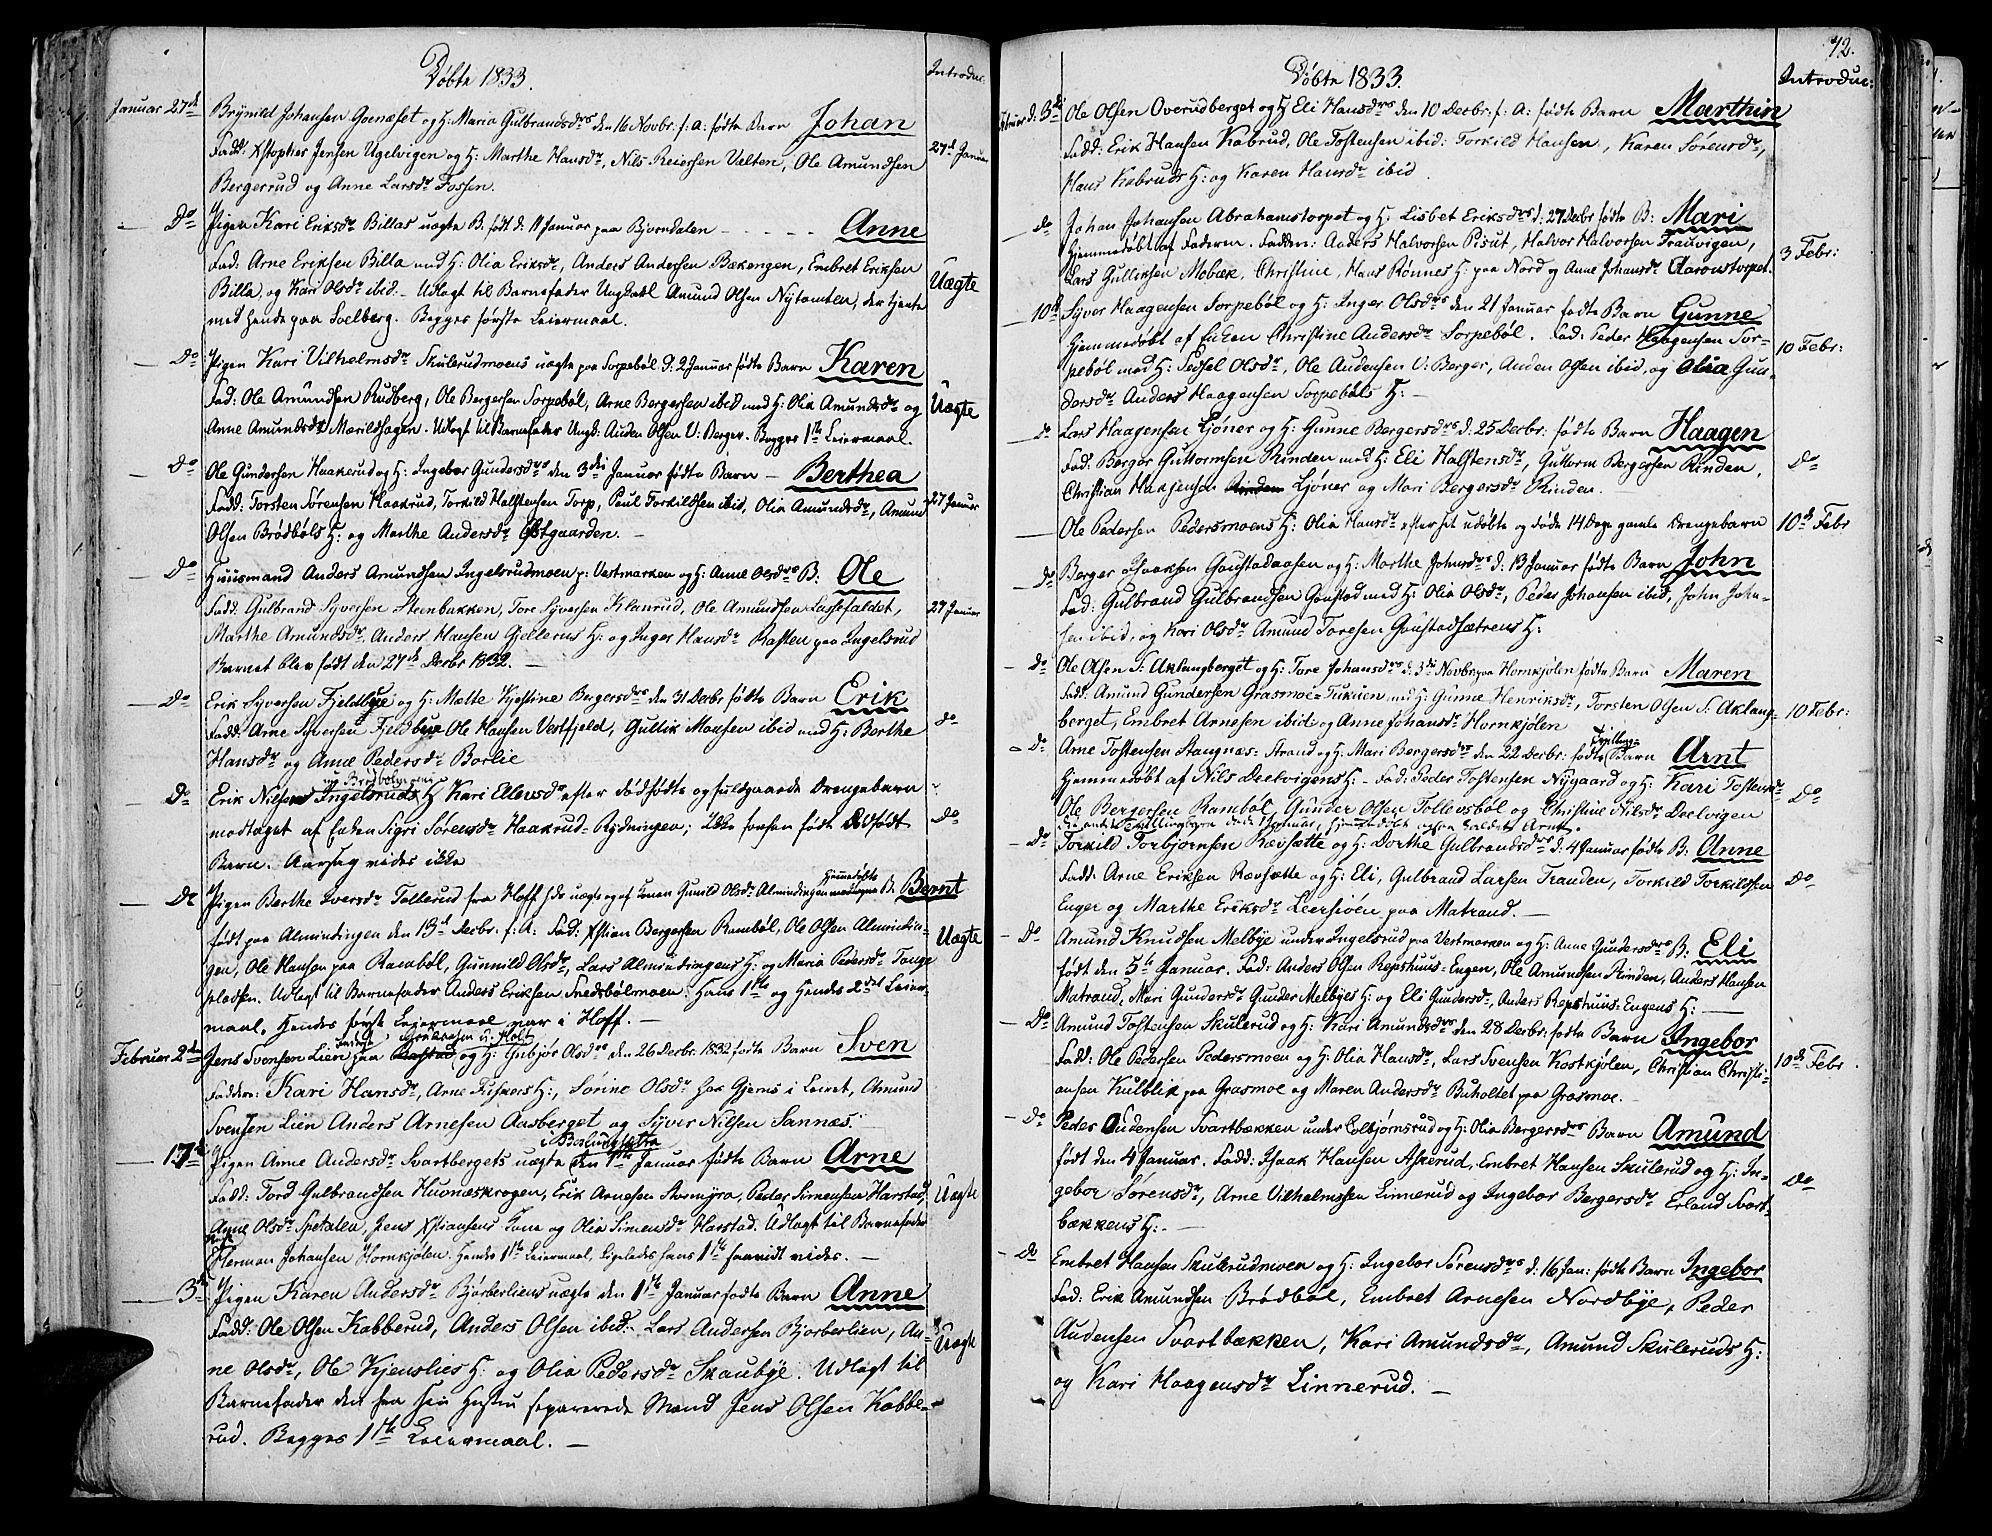 Døbte 1833.
Introduc:
Januar 27de
Brynild Johansen Goenæset og H: Maria Gulbrandsdr den 16 Novbr: f: A: fødte Barn Johan
Fadd: Xstopher Jensen Ugelvigen og H: Marthe Hansdr, Nils Reiersen Velten, Ole Amundsen
27d Januar
Bergerrud og Anne Larsdr Fossen.
Do Pigen Kari Eriksdr Billas uægte B. født d: 11 Januar paa Bjørndalen Anne
Fad: Arne Eriksen Billa med H: Olia Eriksdr, Anders Andersen Bækengen, Embret Eriksen
Uægte
Billa, og Kari Olsdr ibid. Udlagt til Barnefader Ungkarl Amund Olsen Nytomten, der tjente
med hende paa Solberg. Begges første Leiermaal.
Do Pigen Kari Vilhelmsdr Skulerudmoens uægte paa Torpebøl d. 2 Januar fødte Barn Karen
Fad: Ole Amundsen Rudberg, Ole Bergersen Torpebøl, Arne Bergersen ibid med H: Olia Amundsdr og
Uægte
Anne Amundsdr Marildhagen. Udlagt til Barnefader Ungk: Auden Olsen V: Berger. Begges 1ste Leiermaal.
Do Ole Gundersen Haakerud og H: Ingebor Gundersdr den 3die Januar fødte Barn Berthea
Fadd: Torsten Sørensen Haakrud, Torkild Halstensen Torp, Poul Torkildsen ibid, Olia Amundsdr, Amund
27 Januar
Olsen Brødbøls H: og Marthe Andersdr Østgaarden.
Do Huusmand Anders Amundsen Ingelsrudmoen p: Vestmarken og H: Anne Olsdr B: Ole
Fadd: Gulbrand Syversen Steenbakken, Tore Syversen Klanrud, Ole Amundsen Lassefaldet,
27 Januar
Marthe Amundsdr, Anders Hansen Gjellerus H: og Inger Hansdr Basten paa Ingelsrud
Barnet blev født den 27de Decbr 1832.
Do Erik Syversen Fjeldbye og H: Mette Kjestine Bergersdr den 31 Decbr fødte Barn Erik
Fadd: Arne Syversen Fjeldbye Ole Hansen Vestfjeld, Gullik Monsen ibid med H: Berthe
Do
Hansdr og Anne Pedersdr Borlie
Do Erik Nilsens Ingelsruds H Kari Ellensdr efter dødfødte og fuldgaaede Drengebarn
modtaget af Enken Sigri Sørensdr Haakrud-Rydningen; Ikke forhen født dødfødt
Do
Barn. Aarsag vides ikke
Do Pigen Berthe Iversdr Tollerud fra Hoff sds uægte og af Konen Gunild Olsdr Almindingen Hjemmedøbte B. Bernt
født paa Almindingen den 13d Decbr: f: A: Fad: Xstian Bergersen Rambøl, Ole Olsen Almindin-
Uægte
gen, Ole Hansen paa Rambøl, Gunnild Olsdr, Lars Almindingens H: og Maria Pedersdr Tange
pladsen. Udlagt til Barnefader Anders Eriksen Tredsbølmoen. Hans 1ste og Hendes 2det Leier-
maal. Hendes første Leiermaal var i Hoff.
Februar 2den
Jens Svensen Lien fra og H: Gubjør Olsdr den 26 Decbr. 1832 fødte Barn Sven
Faddere: Kari Hansdr, Arne Fiskers H:, Sørine Olsdr hos Gjems i Leiret, Amund
Svensen Lien Anders Arnesen Aasberget og Syver Nilsen Sannæs.
17de Pigen Anne Andersdr Svartbergets uægte den 1ste Januar fødte Barn Arne
Fadd: Tord Gulbrandsen Huonæskrogen, Erik Arnesen Stormyra, Peder Simensen Harstad
Uægte
Anne Olsdr Spetalen, Jens Xstiansens Kone og Olia Simensdr Harstad. Udlagt til Barnefader
Herman Johansen Hornkjølen. Hendes 1ste Leiermaal, ligeledes hans 1ste saavidt vides.
3de Pigen Karen Andersdr Bjørberliens uægte den 1ste Januar fødte Barn Anne
Fadd: Ole Olsen Kabberud, Anders Olsen ibid. Lars Andersen Bjorberlien, An-
Uægte
ne Olsdr, Ole Kjenslies H: og Olia Pedersdr Skaubye. Udlagt til
Barnefader den fra sin Hustru separerede Mand Jens Olsen Kabbe-
rud. Begges 1ste Leiermaal.
72.
Døbte 1833.
Introduc:
Februar d. 3de
Ole Olsen Overudberget og H Eli Hansdr den 10 Decbr: f: A: fødte Barn Marthin
Fadd: Erik Hansen Kabrud, Ole Tostensen ibid: Torkild Hansen, Karen Sørensdr,
Hans Kabruds H: og Karen Hansdr ibid.
Do Johan Johansen Abrahamstorpet og H: Lisbet Eriksdr d: 27 Decbr fødte B: Mari
Hjemmedøbt af Faderen. Fadderne: Anders Halvorsen Pisut, Halvor Halvorsen Trauvigen,
3 Febr:
Lars Gulliksen Mobæk, Christine, Hans Rønnes H: paa Nord og Anne Johansdr Aaronstorpet.
10de Syver Haagensen Torpebøl og H: Inger Olsdr den 21 Januar fødte Barn Gunne
Hjemmedøbt af Enken Christine Andersdr Torpebøl. Fad: Peder Haagensen Tor-
10 Febr:
pebøl med H: Sedsel Olsdr, Ole Audensen V: Berger, Auden Olsen ibid, og Olia Gun-
dersdr Anders Haagensen Torpebøls H:
Do Lars Haagensen Ljøner og H: Gunne Bergersdr d: 25 Decbr: fødte Barn Haagen
Fad: Berger Guttormsen Rinden med H: Eli Halstensdr, Guttorm Bergersen Rinden,
Do
Christian Haagensen Ljøner og Mari Bergersdr Rinden.
Ole Pedersen Pedersmoens H: Olia Hansdr efter sit udøbte og døde 14 Dage gamle Drengebarn
10de Febr
Do Berger Isaaksen Goustadaasen og H: Marthe Johnsdr d. 13 Januar fødte Barn John
Fad: Gulbrand Gulbrandsen Goustad med H: Olia Olsdr, Peder Johansen ibid, John John-
sen ibid, og Kari Olsdr Amund Toresen Goustadsætrens H:
Do Ole Olsen S: Aklangberget og H: Tore Johansdr d. 3die Novbr paa Hornkjølen fødte Barn Maren
Fadd: Amund Gundersen Grasmoe-Tukuen med H: Gunne Henriksdr, Torsten Olsen S: Aklang-
10 Febr:
berget, Embret Arnesen ibid: og Anne Johansdr Hornkjølen
Do Arne Tostensen Haugnæs-Strand og H: Mari Bergersdr den 22 Decbr: fødte Tvilling- Barn Arnt
Hjemmedøbt af Nils Deelvigens H: Fad: Peder Tostensen Nygaard og H: Kari Tostensdr
Do
Ole Bergersen Rambøl, Gunder Olsen Tollevsbøl og Christine Nilsdr Deelvigen
Do Torkild Torbjørnsen Rævsætte og H: Dorthe Gulbrandsdr d: 4 Januar fødte B: Anne
Fadd: Arne Eriksen Rævsætte og H: Eli, Gulbrand Larsen Tranden, Torkild Torkildsen
Do
Enger og Marthe Eriksdr Leersjøen paa Matrand.
Do Amund Knudsen Melbye under Ingelsrud paa Vestmarken og H: Anne Gundersdr B: Eli
født den 5te Januar. Fad: Anders Olsen Repshuus-Engen, Ole Amundsen Rinden, Anders Hansen
Matrand, Mari Gundersdr Gunder Melbyes H: og Eli Gundersdr, Anders Repshuus-Engens H:
Do Amund Tostensen Skulerud og H: Kari Amundsdr den 28 Decbr: fødte Barn Ingebor
Fadd: Ole Pedersen Pedersmoen og H: Olia Hansdr, Lars Svensen Kostkjølen, Christian Christi-
10de Febr.
ansen Kulblik paa Grasmoe og Maren Andersdr Buholtet paa Grasmoe.
Do Peder Audensen Svartbækken under Kolbjørnsrud og H: Olia Bergersdr Barn Amund
født den 4 Januar. Fadd: Isaak Hansen Askerud, Embret Hansen Skulerud og H: In-
gebor Sørensdr, Arne Vilhelmsen Linnerud og Ingebor Bergersdr Erland Svart-
Do
bækkens H:
Do Embret Hansen Skulerudmoen og H: Ingebor Sørensdr d: 16 Jan: fødte Barn Ingebor
Fad: Erik Amundsen Brødbøl, Embret Arnesen Nordbye, Peder
Audensen Svartbækken, Kari Amundsdr, Amund Skuleruds H:
og Kari Haagensdr Linnerud.